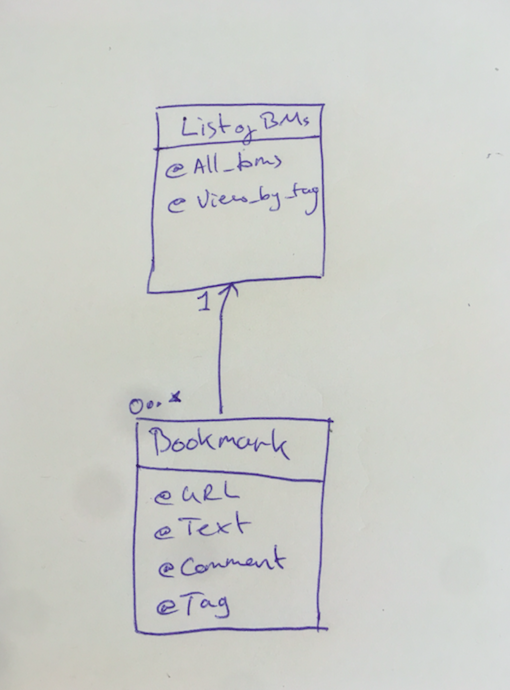 List of BMs
@ All_bms
@ View_by_tag
1
0..*
Bookmark
@ URL
@ Text
@ Comment
@ Tag